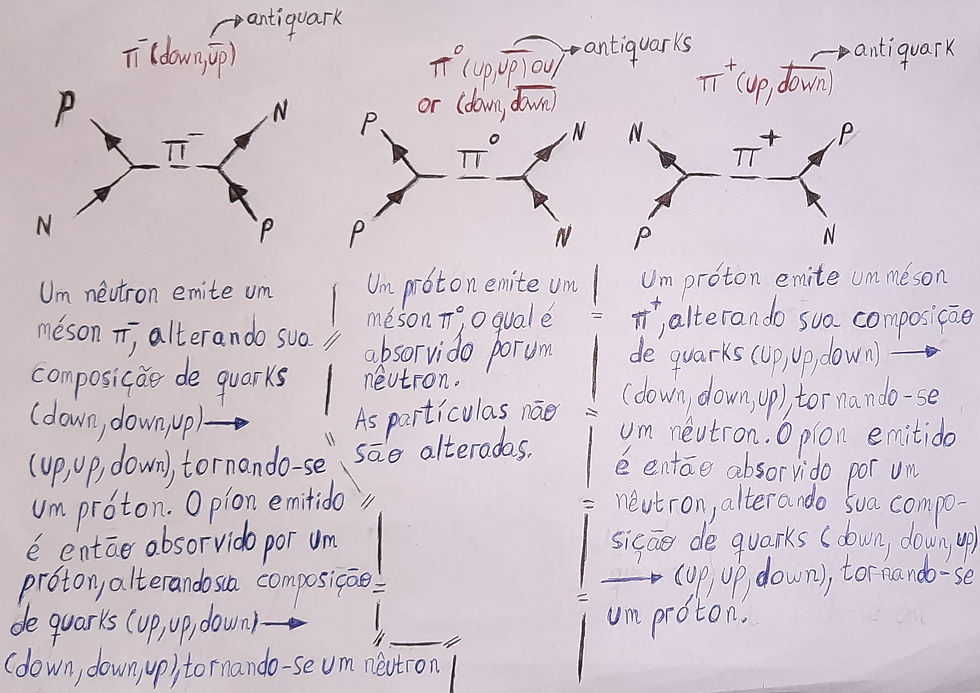 antiquark
π⁻ (down, u̅p̅)
P
N
π⁻
N
P
Um nêutron emite um
méson π⁻, alterando sua
composição de quarks
(down, down, up) →
(up, up, down), tornando-se
um próton. O píon emitido
é então absorvido por um
próton, alterando sua composição
de quarks (up, up, down) →
(down, down, up), tornando-se um nêutron
antiquarks
π⁰ (up, u̅p̅) ou/
or (down, d̅o̅w̅n̅)
P
N
π⁰
P
N
Um próton emite um
méson π⁰, o qual é
absorvido por um
nêutron.
As partículas não
são alteradas.
antiquark
π⁺ (up, d̅o̅w̅n̅)
N
P
π⁺
P
N
Um próton emite um méson
π⁺, alterando sua composição
de quarks (up, up, down) →
(down, down, up), tornando-se
um nêutron. O píon emitido
é então absorvido por um
nêutron, alterando sua compo-
sição de quarks (down, down, up)
→ (up, up, down), tornando-se
um próton.